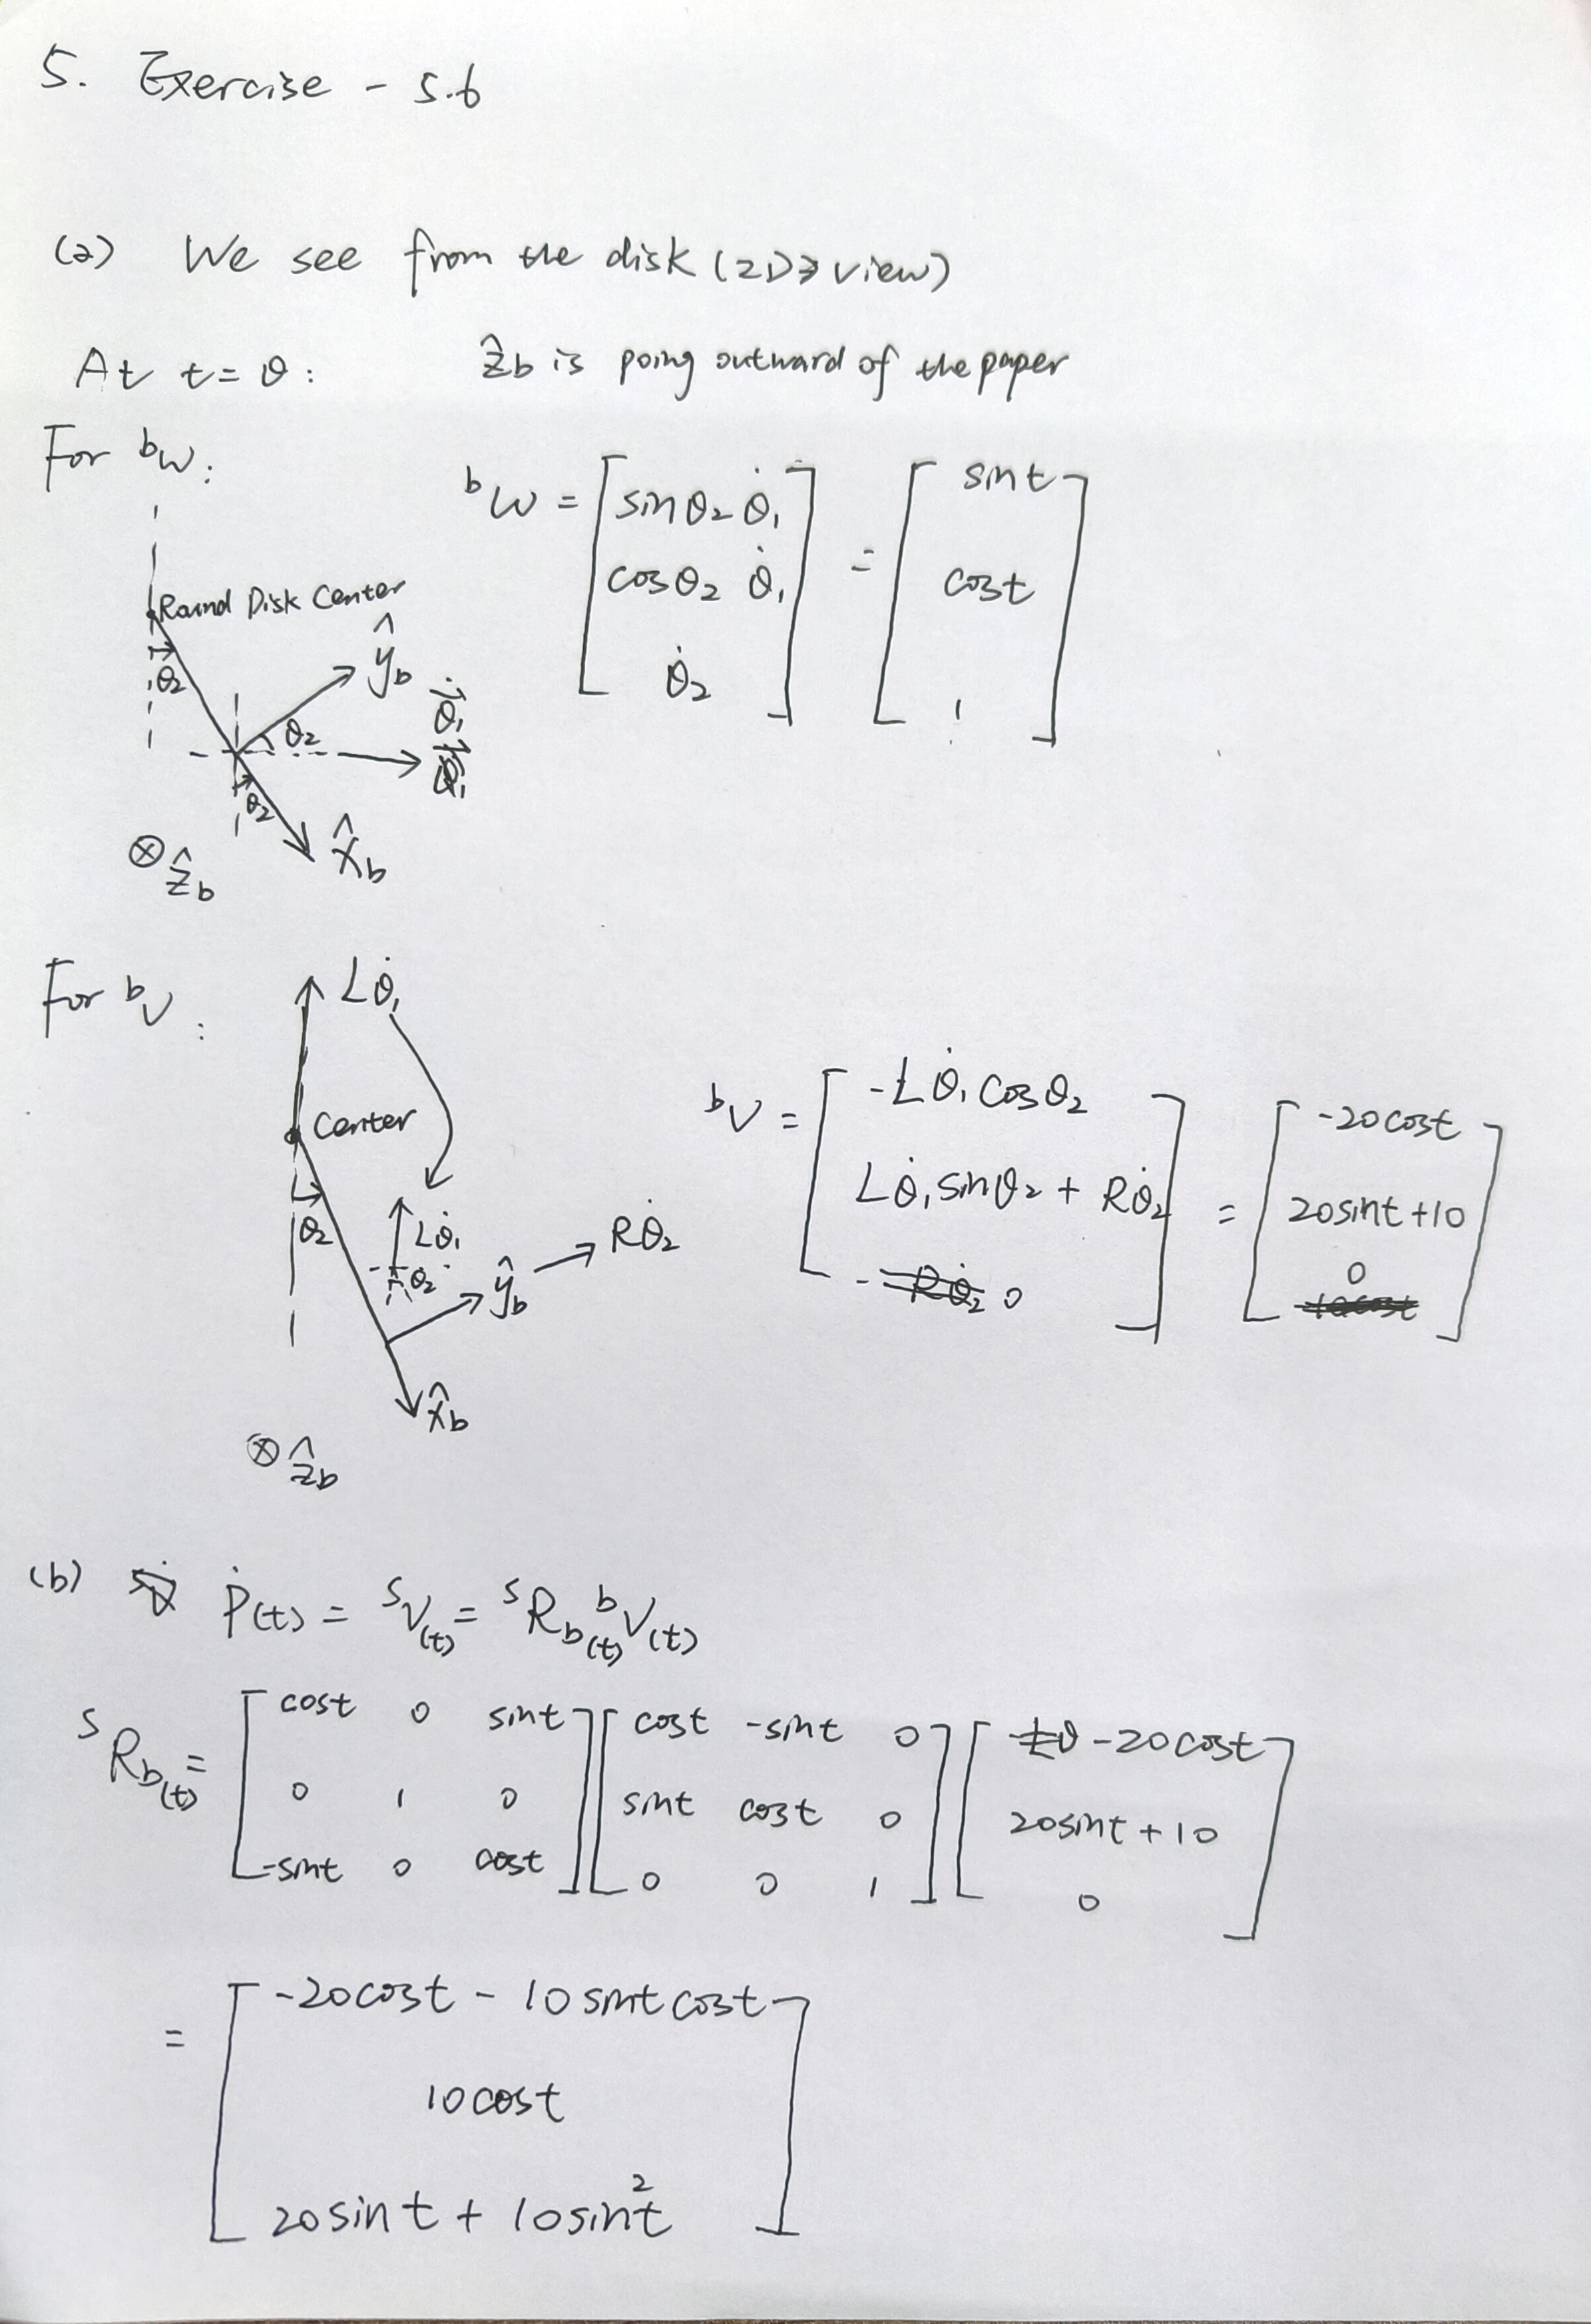 5. Exercise - 5.6
(a) We see from the disk (2D view)
At t=0: ẑb is poing outward of the paper
For ᵇω:
ᵇω = [sinθ₂ θ̇₁; cosθ₂ θ̇₁; θ̇₂] = [sint; cost; 1]
Round Disk Center
θ₂
ŷb
θ₂
θ̇₁
θ₂
x̂b
⊗ ẑb
For ᵇv:
Lθ̇₁
Center
θ₂
Lθ̇₁
θ₂
ŷb
Rθ̇₂
x̂b
⊗ ẑb
ᵇv = [-Lθ̇₁cosθ₂; Lθ̇₁sinθ₂ + Rθ̇₂; 0] = [-20cost; 20sint+10; 0]
(b) Ṗ(t) = ˢv(t) = ˢRb(t) ᵇv(t)
ˢRb(t) = [cost 0 sint; 0 1 0; -sint 0 cost] [cost -sint 0; sint cost 0; 0 0 1] [-20cost; 20sint+10; 0]
= [-20cost - 10sintcost; 10cost; 20sint + 10sin²t]